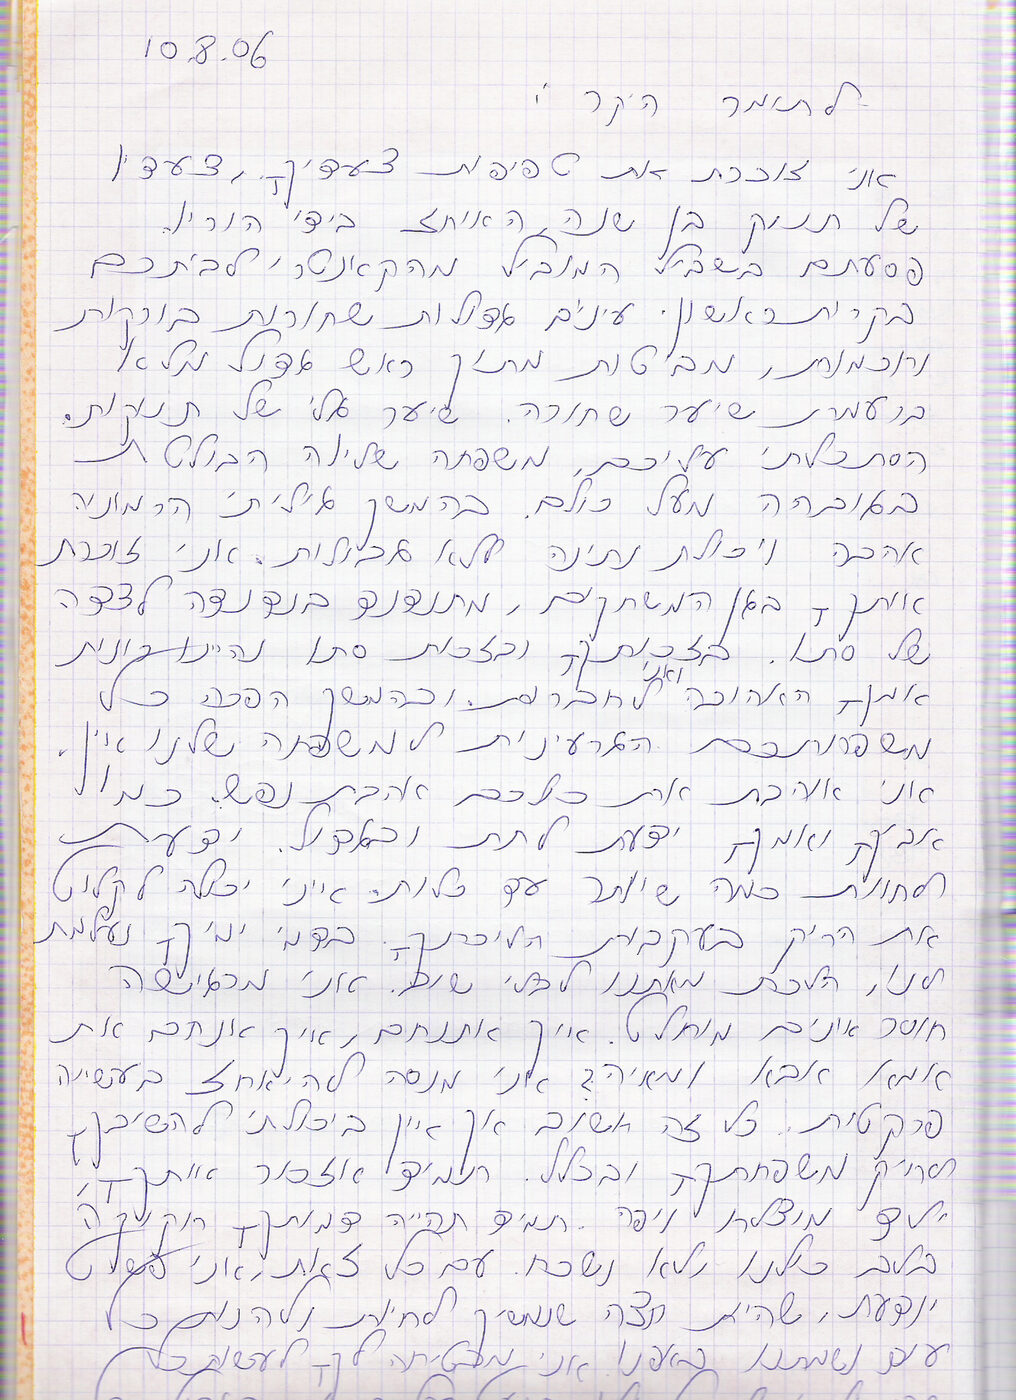 10.8.06
לתאמר היקר !
אני זוכרת את טפיפות צעדיך, צעדיו
של תינוק בן שנה, האוחז בידי הוריו.
פסעתם בשביל המוביל מהקאנטרי לביתכם
בקרית ראשון. עינים גדולות שחורות בורקות
וחכמות, מביטות מתוך ראש גדול מלא
ברעמת שיער שחורה. שיער גלי של תינוקות.
הסתכלתי עליכם, משפחה שלווה הבולטת
בגובהה מעל כולם. בהמשך גיליתי הרמוניה
אהבה ויכולת נתינה ללא גבולות. אני זוכרת
אותך בגן המשחקים, מתנדנד בנדנדה לצדה
של סתו. בזכותך ובזכות סתו נהיינו רונית
אמך האהובה ואני לחברות. ובהמשך הפכה כל
משפחתכם הגרעינית למשפחה שלנו
אני אוהבת את כולכם אהבת נפש. כמו
אביך ואמך ידעת לתת ובגדול. ידעת
לחוות כמה שיותר עד כלות. אייני יכולה לקלוט
את הריק בעקבות הליכתך. בדמי ימיך נעלמת
לנו, הלכת מאתנו לבלי שוב. אני מרגישה
חוסר אונים מוחלט. איך אתנחם, איך אנחם את
אמא אבא ומאיה? אני מנסה להיאחז בעשייה
פרקטית. כל זה חשוב אך אין ביכולתי להשיבך
לחיק משפחתך ובכלל. תמיד אזכור אותך,
ילד מוצלח ויפה. תמיד תהייה דמותך חקוקה
בלב כולנו ולא נשכח. עם כל זאת, אני
יודעת, שהיית רוצה שנמשיך לחיות ולהנות כל
עוד נשמתנו באפנו. אני מבטיחה לך לעשות כל